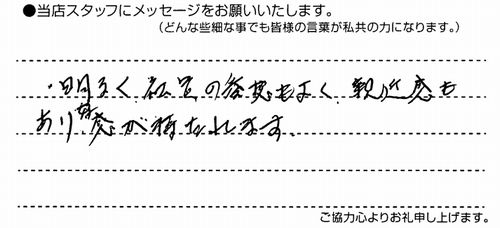 ●当店スタッフにメッセージをお願いいたします。
(どんな些細な事でも皆様の言葉が私共の力になります。)
・明るく、社員の態度もよく、親近感も
あり好感が持たれます。
ご協力心よりお礼申し上げます。